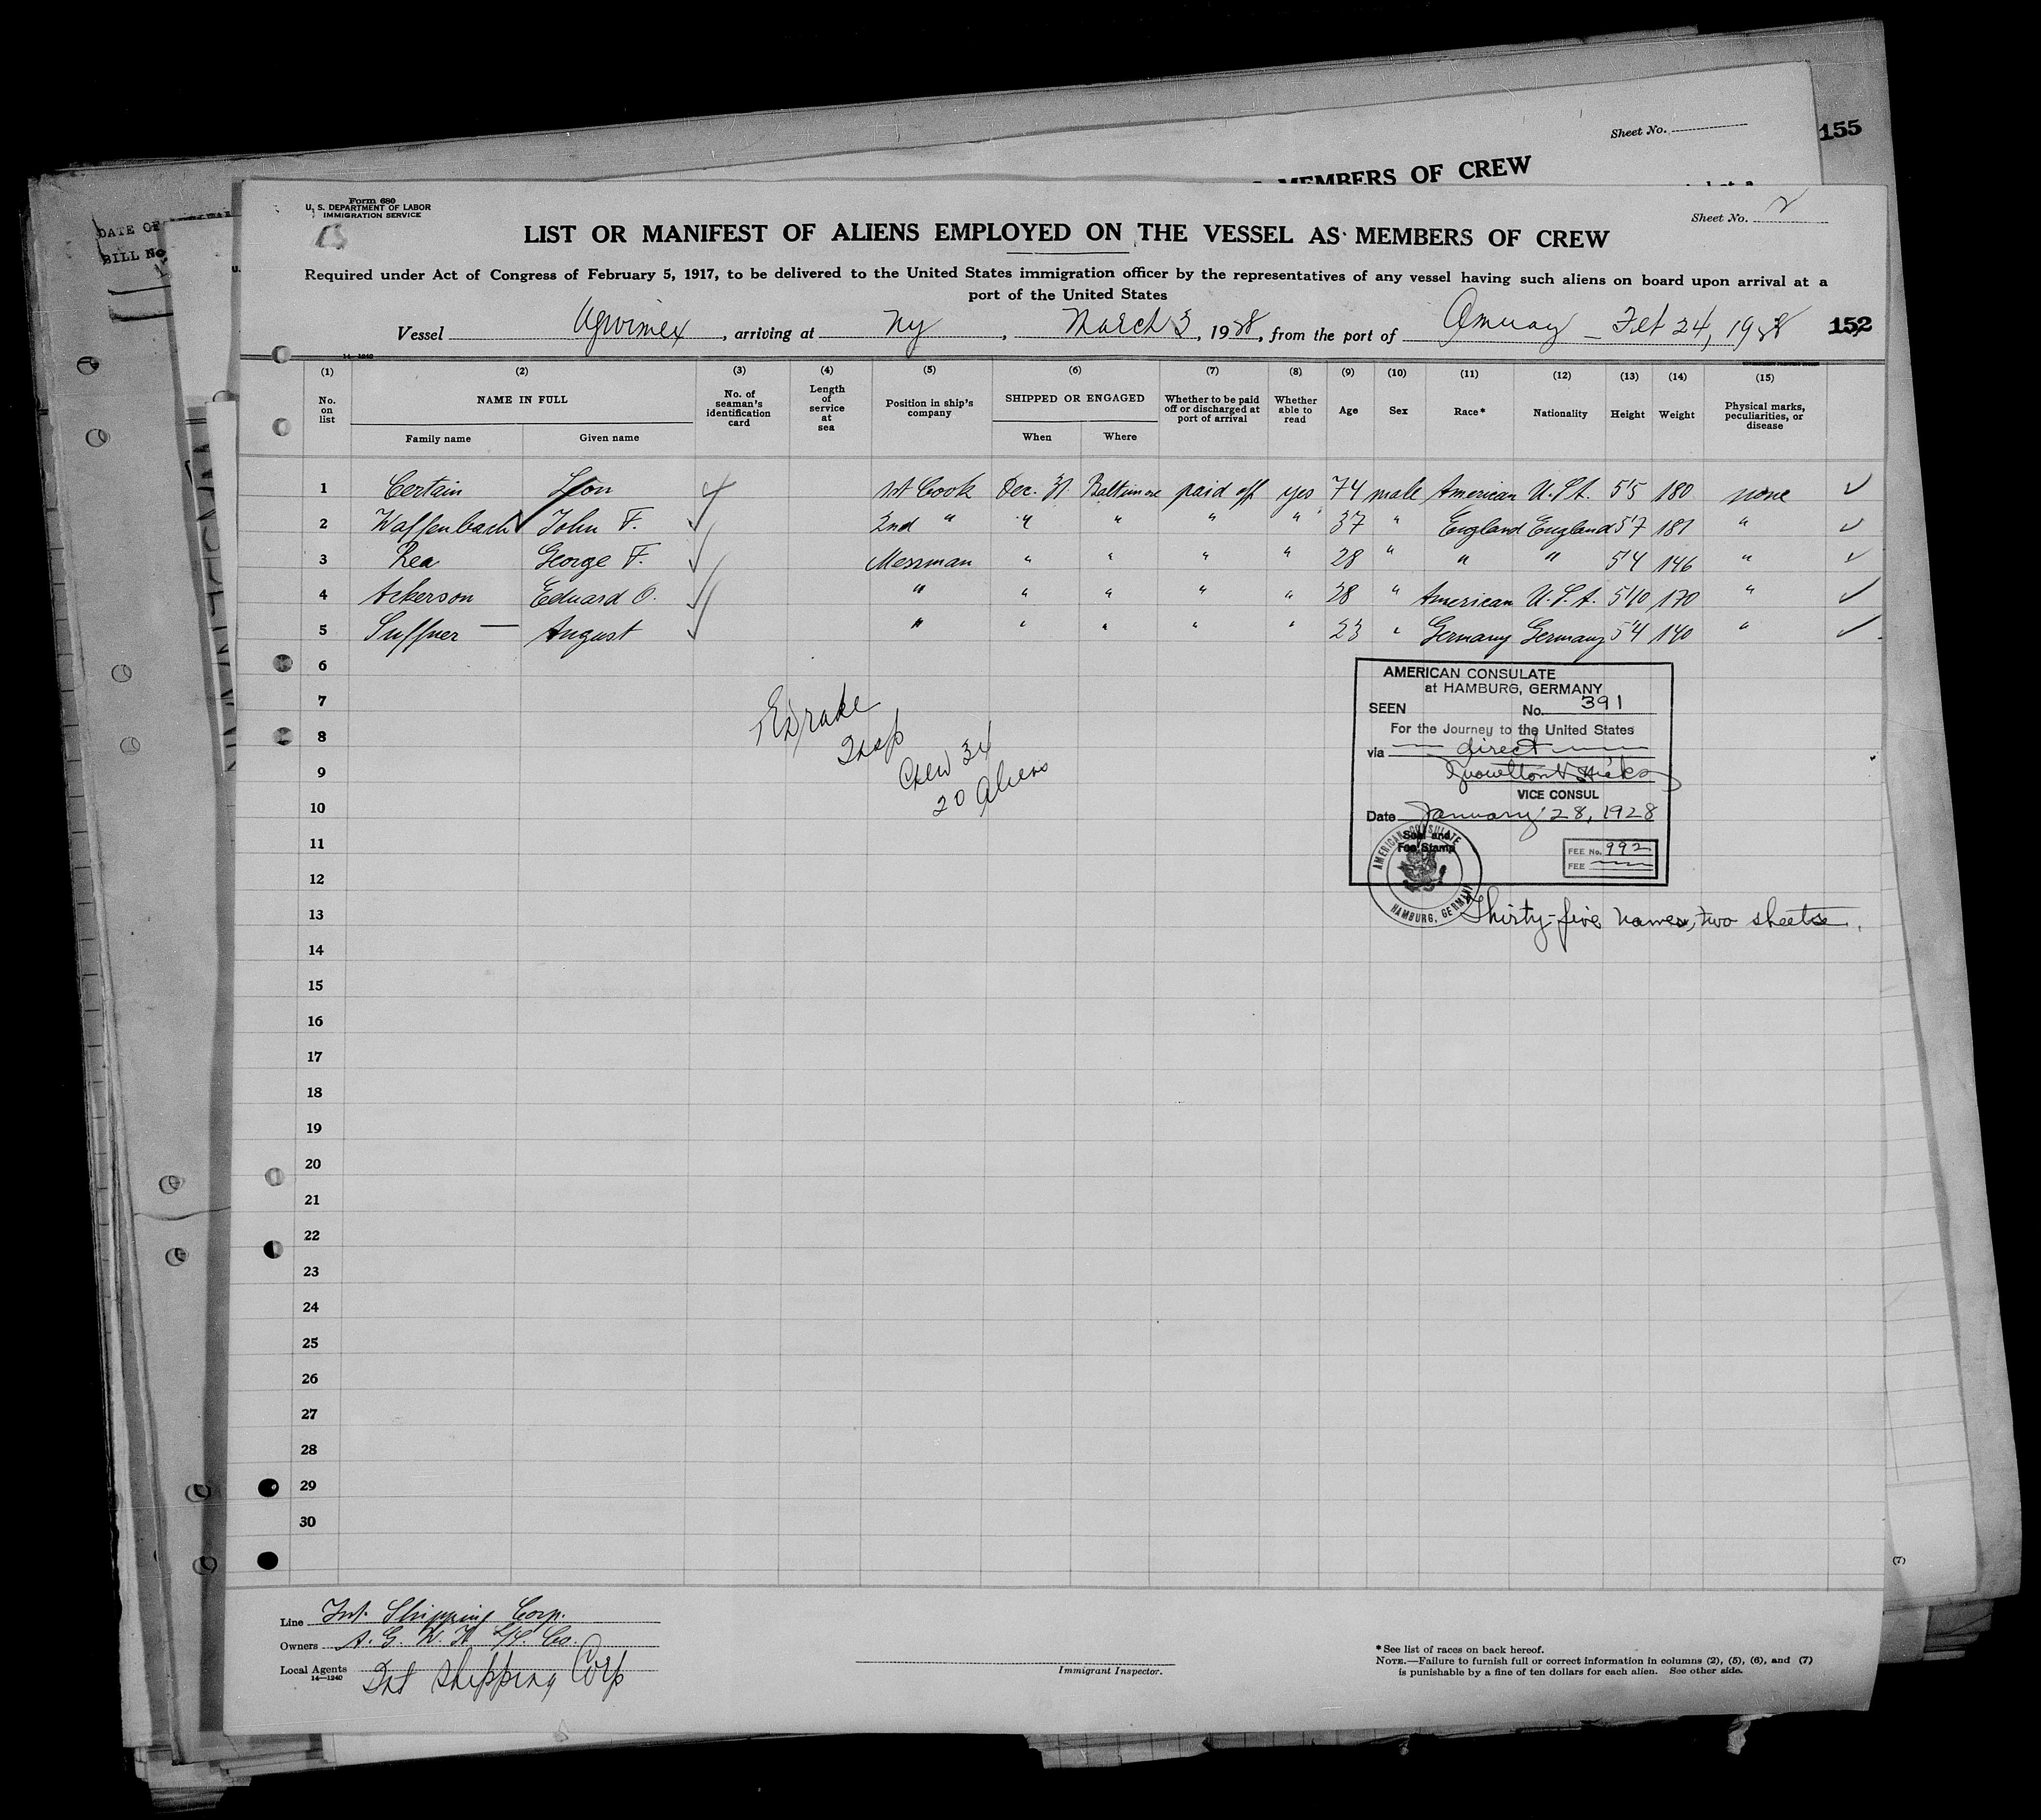 Sheet No.
155
MEMBERS OF CREW
DATE OF
BILL No
Form 680
U. S. DEPARTMENT OF LABOR
IMMIGRATION SERVICE
Sheet No. 2
LIST OR MANIFEST OF ALIENS EMPLOYED ON THE VESSEL AS MEMBERS OF CREW
Required under Act of Congress of February 5, 1917, to be delivered to the United States immigration officer by the representatives of any vessel having such aliens on board upon arrival at a
port of the United States
Vessel Agwimex, arriving at Ny, March 3, 1928, from the port of Amuay - Feb 24, 1928 152
14—1240
(1) (2) (3) (4) (5) (6) (7) (8) (9) (10) (11) (12) (13) (14) (15)
No. on list NAME IN FULL Family name Given name No. of seaman's identification card Length of service at sea Position in ship's company SHIPPED OR ENGAGED When Where Whether to be paid off or discharged at port of arrival Whether able to read Age Sex Race* Nationality Height Weight Physical marks, peculiarities, or disease
1 Certain Leon 1st Cook Dec. 31. Baltimore paid off yes 74 male American U.S.A. 5'5 180 none
2 Waffenbach John F. 2nd " " " " " 37 " England England 5'7 181 "
3 Rea George F. Messman " " " " 28 " " " 5'4 146 "
4 Ackerson Eduard O. " " " " " 28 " American U.S.A. 5'10 170 "
5 Suffner — August " " " " " 23 " Germany Germany 5'4 140 "
6
7
8
9
10
11
12
13
14
15
16
17
18
19
20
21
22
23
24
25
26
27
28
29
30
Drake
Insp
Crew 34
20 Aliens
AMERICAN CONSULATE
at HAMBURG, GERMANY
SEEN No. 391
For the Journey to the United States
via direct
Hicks
VICE CONSUL
Date January 28, 1928
Seal and
Fee Stamp
AMERICAN CONSULATE HAMBURG, GERMANY
FEE No. 992
FEE
Thirty-five names, two sheets.
Line Int. Shipping Corp.
Owners A. G. W. I. S/S. Co.
Local Agents Int Shipping Corp
14—1240
Immigrant Inspector.
* See list of races on back hereof.
NOTE.—Failure to furnish full or correct information in columns (2), (5), (6), and (7)
is punishable by a fine of ten dollars for each alien. See other side.
(7)